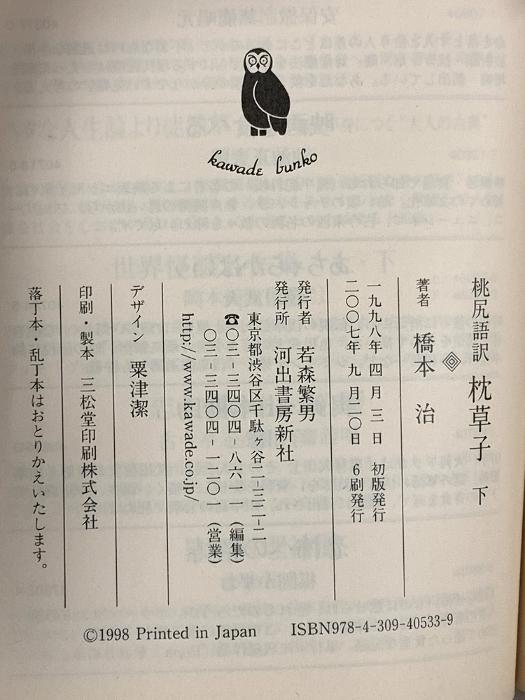 kawade bunko
桃尻語訳 枕草子 下
著者 橋本 治
一九九八年 四月 三日 初版発行
二〇〇七年 九月二〇日 6刷発行
発行者 若森繁男
発行所 河出書房新社
東京都渋谷区千駄ヶ谷二-三二-二
☎〇三-三四〇四-八六一一(編集)
〇三-三四〇四-一二〇一(営業)
http://www.kawade.co.jp/
デザイン 粟津潔
印刷・製本 三松堂印刷株式会社
落丁本・乱丁本はおとりかえいたします。
©1998 Printed in Japan ISBN978-4-309-40533-9